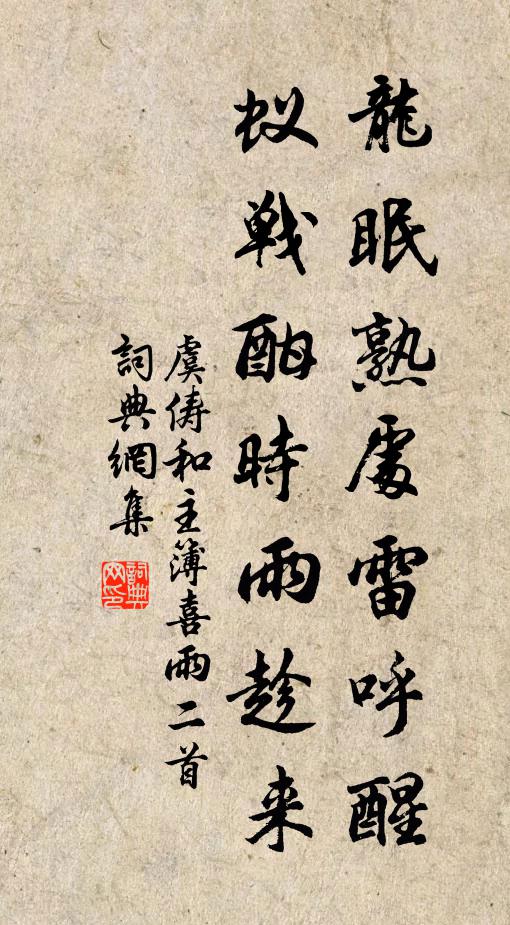 龍眠熟處雷呼醒
蚁戦酣時雨趁来
虞俦和主簿喜雨二首
詞典網集
詞典网印